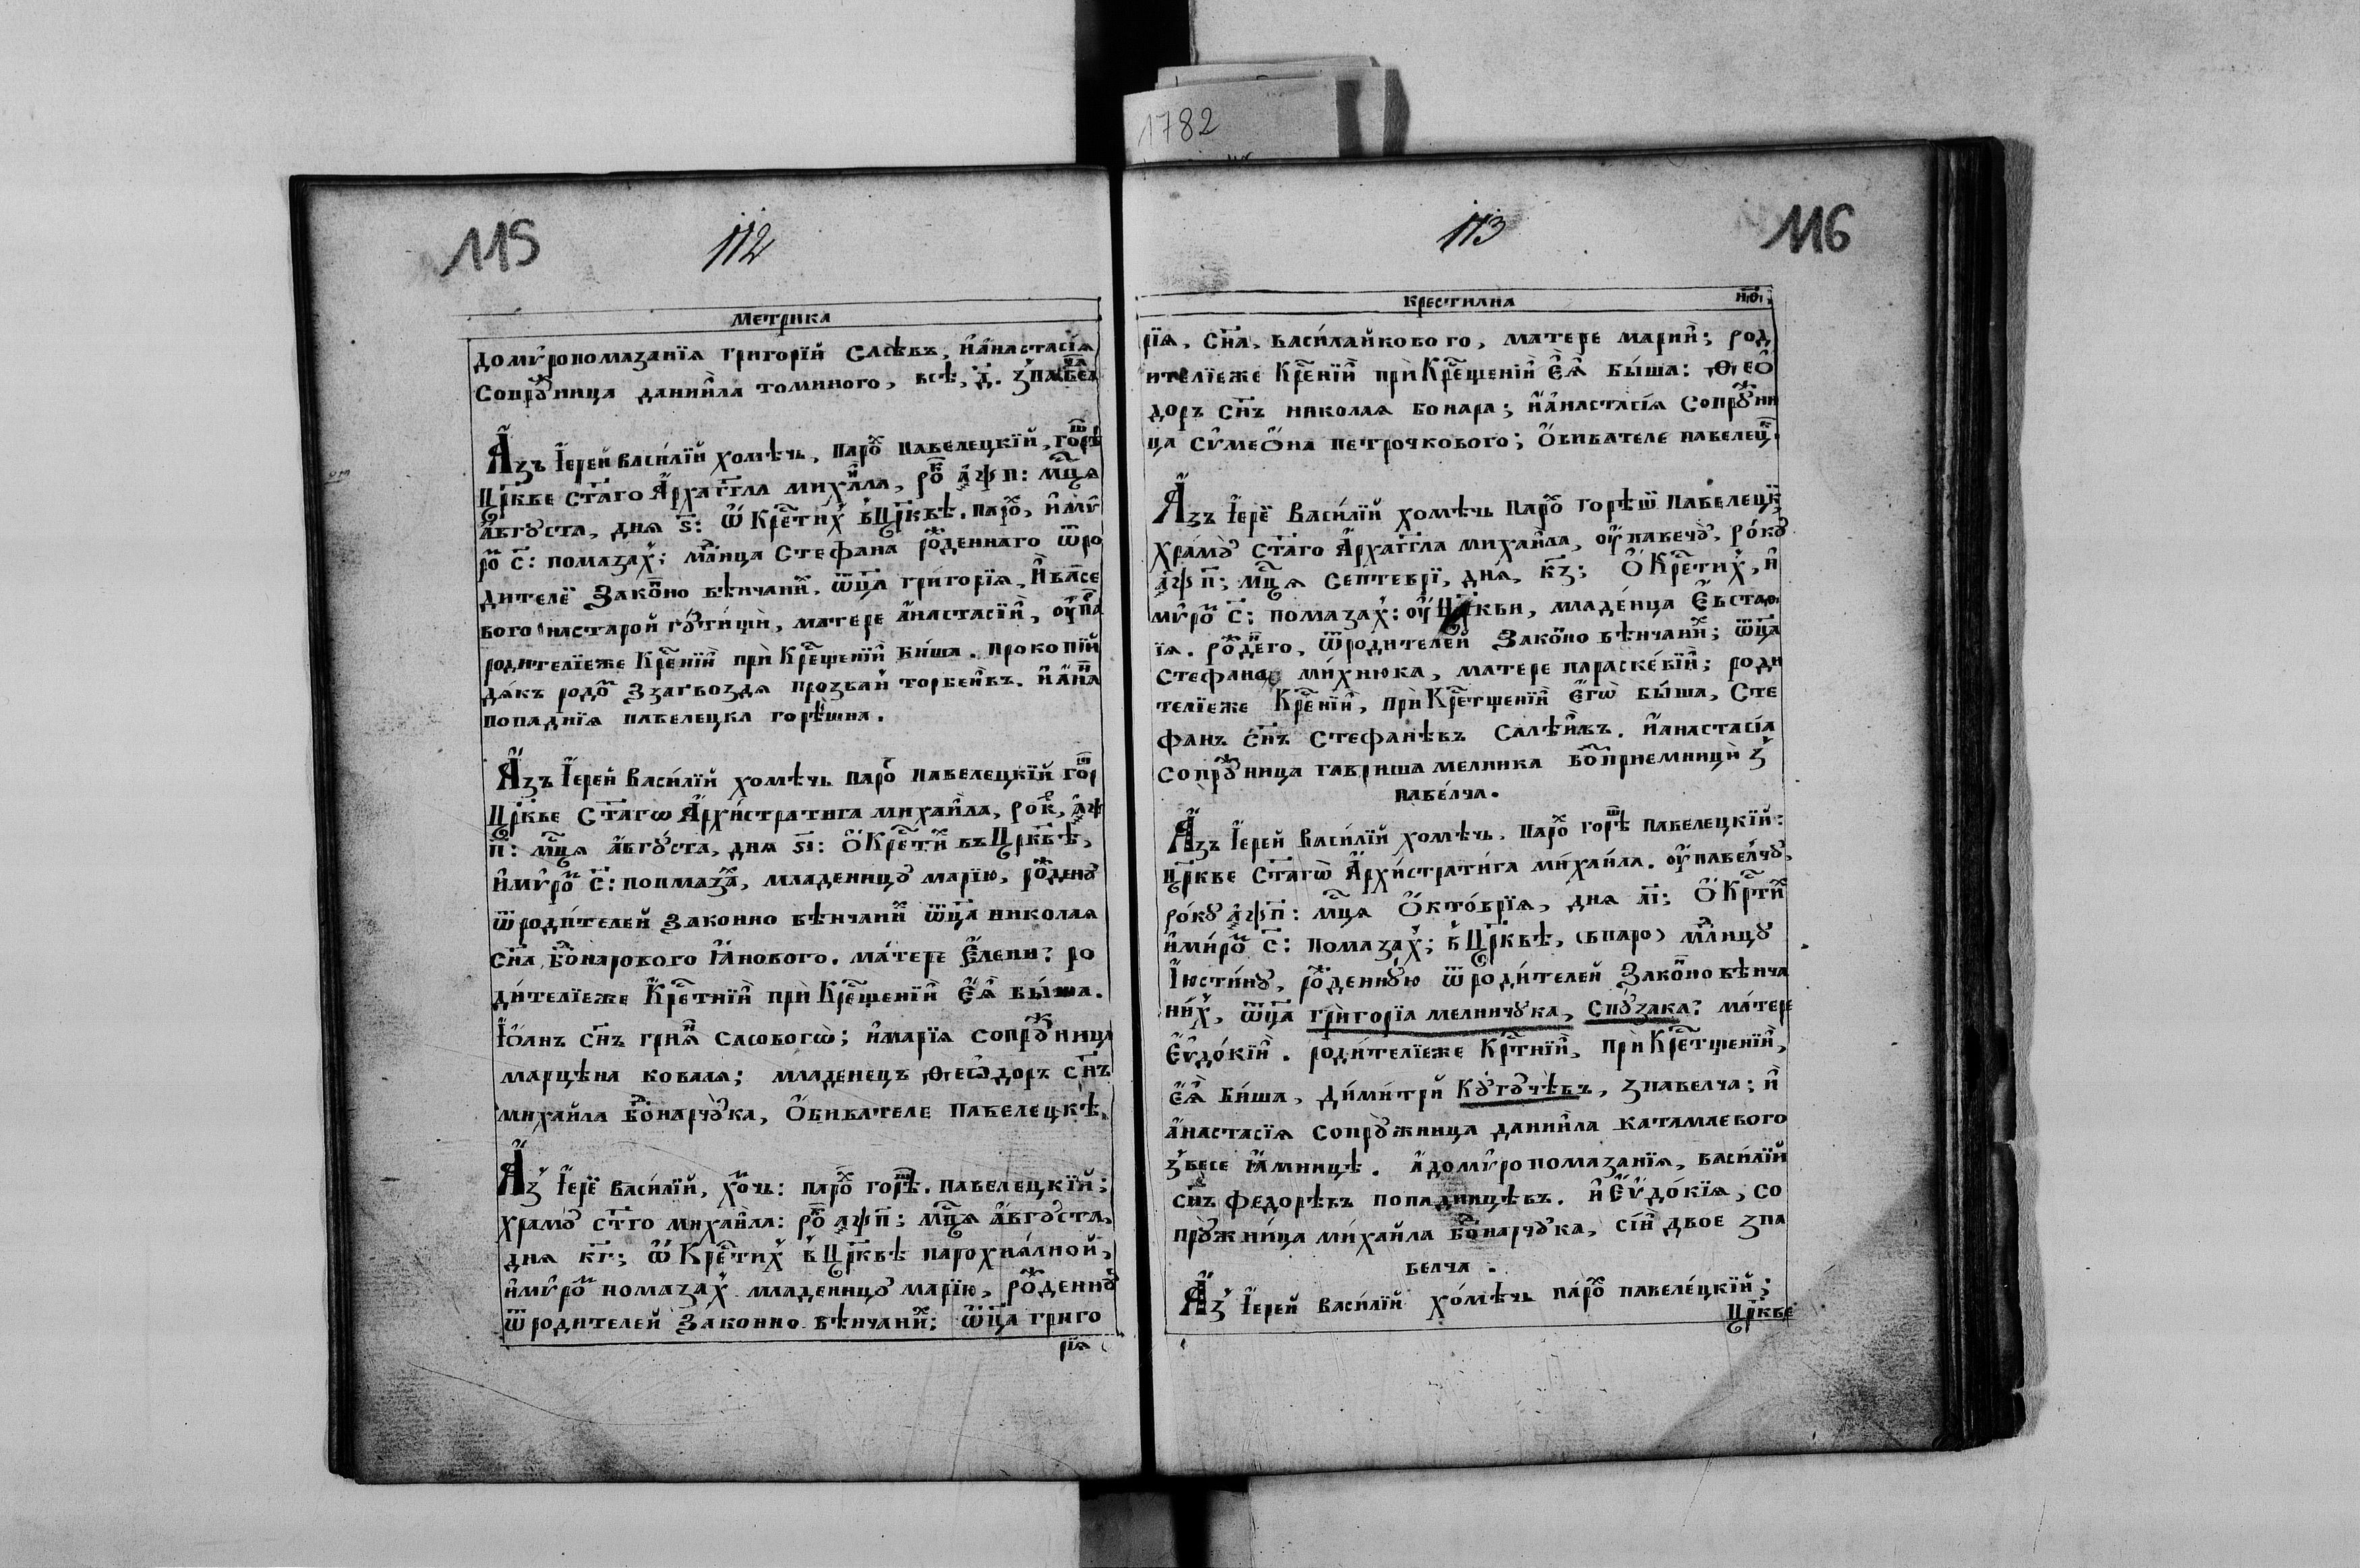 1782
115
112
Метрика
домѵропомазанїя григорїй Слсѣвъ, и҆анастасїя
Сопрꙋ҃ница даниила томиного, всѣ, д҃. з̾павел
Азъ Іерей василїй хомѣчъ, паро҃ павелецкїй, горѣ
Цр҃кве ст҃аго Архаг҃гла михаила, ро҃к ҂аѱп: мц҃а
августа, дня ѕ҃: ѿ Кре҃тихъ в̾цр҃квѣ. паро҃, имѵ
ро҃ с҃: помазах̾; мл҃нца Стефана ро҃деннаго ѿро
дителей Зако҃но вѣнчани҃, ѿц҃а григорїя, Ива҃се
вого настарой гꙋтищи, матере анастасїи, оу҆па҃
родителїеже Кре҃нїи при Кре҃щенїи биша. прокопїй
дякъ родо҃ Ззагвоздя прозвани торбеивъ. и҆ан҃а
попаднїя павелецка горѣшна.
Азъ Іерей Василїй хомѣчъ паро҃ павелецкїй го҃р
Цр҃кве Ст҃агѡ Архистратига михаила, рок҃, ҂аѱ
п҃: мц҃а августа, дня ѕ҃і: О Кре҃ти҃ въ Цр҃квѣ,
имѵро҃ с҃: поимаза҃, младеницꙋ марїю, ро҃денꙋ
ѿродителей Законно вѣнчани҃ ѿц҃а николая
сн҃а бо҃нарового Іанового. матере Елени: ро
дителїеже Кре҃тнїи при Кре҃щенїи Ея быша.
Іоанъ сн҃ъ гриня Слсовогѡ; имарїя сопрꙋ҃ница
марцѣна коваля; младенецъ Ѳеѡдоръ сн҃ъ
михаила бо҃нарчꙋка, Обивателе павелецкѣ.
Аз̾ Іерей василїй, хо҃чъ: паро҃ горѣ҃. павелецкїй;
храмꙋ ст҃го михаила: ро҃ ҂аѱп҃; мц҃а августа,
дня кг҃; ѿ Кре҃тих̾ в̾ Цр҃квѣ парохиалной,
имѵро҃ помазах̾ младеницꙋ марїю, ро҃деннꙋ
ѿродителей Законно вѣнчани҃: ѿц҃а григо
рїя
113
116
Крестилна
рїя, сн҃а, василайкового, матере марии; род
ителїеже Кре҃нїи при Кре҃щенїи Ея быша: Ѳео
доръ сн҃ъ николая бонара; и҆анастасїя сопрꙋ҃ни
ца сѵмеона петрочкового; Обивателе павелец҃.
Азъ Іерей Василїй хомѣчъ паро҃ горѣш҃ павелецк҃,
храмꙋ ст҃аго Архаг҃гла михаила, оу павечꙋ, рокꙋ
҂аѱп҃; мц҃а септеврї, дня, кз҃; О Кре҃тих̾, и
мѵро҃ с҃: помазах̾: оу Цр҃кви, младенца Евстаѳ
їя. ро҃де҃го, ѿродителей Зако҃но вѣнчани҃; ѿц҃а
стефана михнюка, матере параскевїи; роди
телїеже Кре҃нїи, при Кре҃тщенїи Егѡ быша, Сте
фанъ сн҃ъ Стефанѣвъ Салѣивъ. и҆анастасїя
сопрꙋ҃ница гавриша мелника бо҃приемници з̾
павелча.
Азъ Іерей Василїй хомѣчъ. паро҃ горѣ҃ павелецкїй:
Цр҃кве ст҃агѡ Архистратига михаила. оу павелчꙋ,
рокꙋ ҂аѱп҃: мц҃а Октобрїя, дня аі҃; О Кр҃ти҃
имиро҃ с҃: помазах̾; в̾ Цр҃квѣ, (впаро) мл҃ницꙋ
Іюстинꙋ, ро҃деннꙋю ѿродителей Зако҃но вѣнча
них̾, ѿц҃а григорїа мелничꙋка, Спꙋзака: матере
Еѵдокїи. родителїеже Кр҃тнїи, при Кре҃тщенїи,
Ея биша, димитри Кꙋгꙋчѣвъ, з̾павелча; и
анастасїя сопрꙋжница даниила катамаевого
з̾весе Іамницѣ. Адомѵропомазанїя, василїй
сн҃ъ федорѣвъ попадницѣвъ. и Еѵдокїя, со
прꙋжница михаила бо҃нарчꙋка, сїи двое зпа
велча.
Аз̾ Іерей василїй хомѣчъ паро҃ павелецкїй;
Цр҃кве